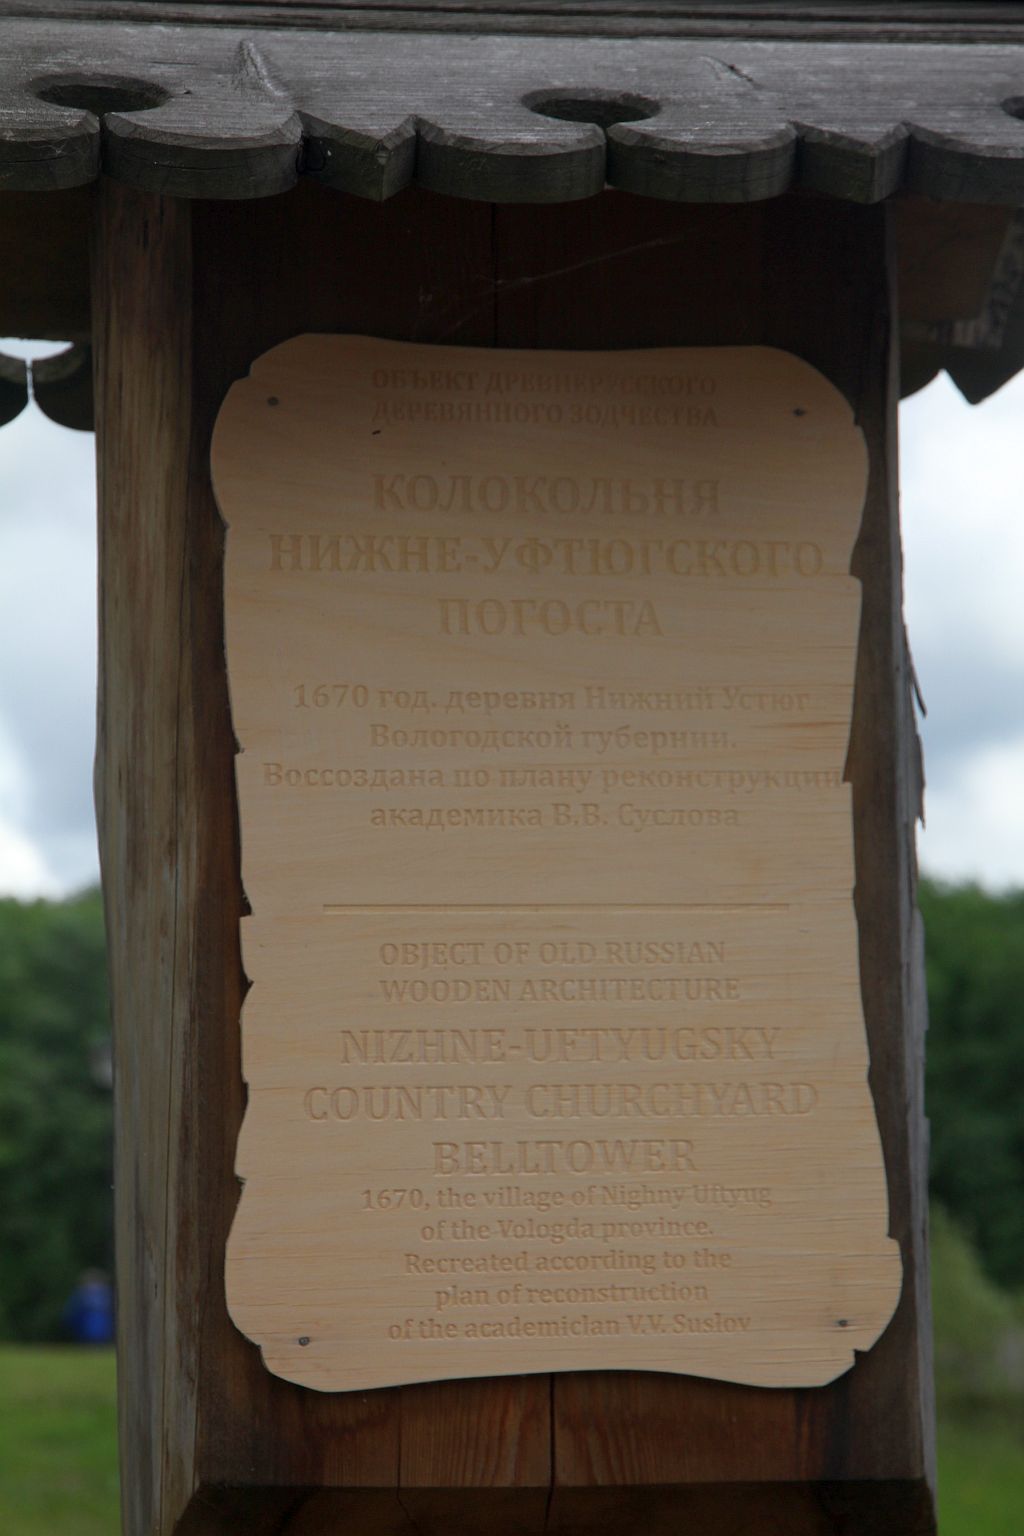 ОБЪЕКТ ДРЕВНЕРУССКОГО
ДЕРЕВЯННОГО ЗОДЧЕСТВА
КОЛОКОЛЬНЯ
НИЖНЕ-УФТЮГСКОГО
ПОГОСТА
1670 год. деревня Нижний Устюг
Вологодской губернии.
Воссоздана по плану реконструкции
академика В.В. Суслова
OBJECT OF OLD RUSSIAN
WOODEN ARCHITECTURE
NIZHNE-UFTYUGSKY
COUNTRY CHURCHYARD
BELLTOWER
1670, the village of Nighny Uftyug
of the Vologda province.
Recreated according to the
plan of reconstruction
of the academiclan V.V. Suslov